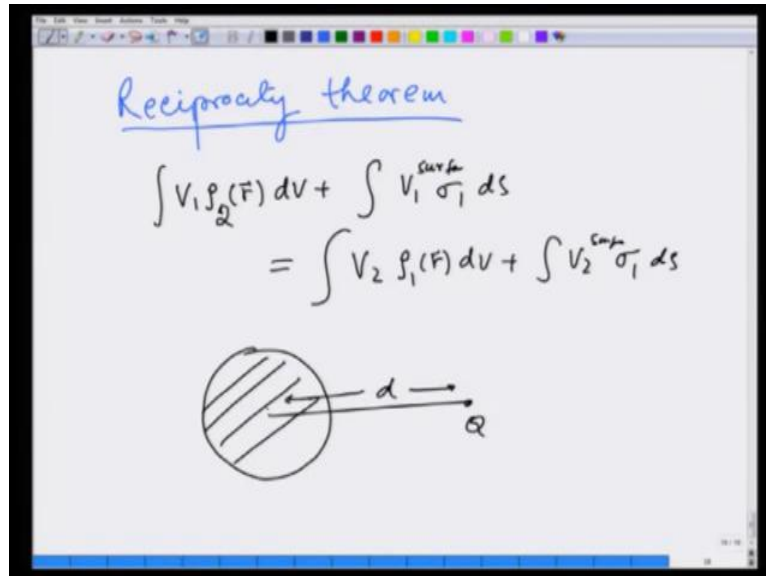 File Edit View Insert Actions Tools Help
Reciprocity theorem
∫ V₁ ρ₂(r̄) dV + ∫ V₁^surfa σ₁ ds
= ∫ V₂ ρ₁(r̄) dV + ∫ V₂^surfa σ₁ ds
d
Q